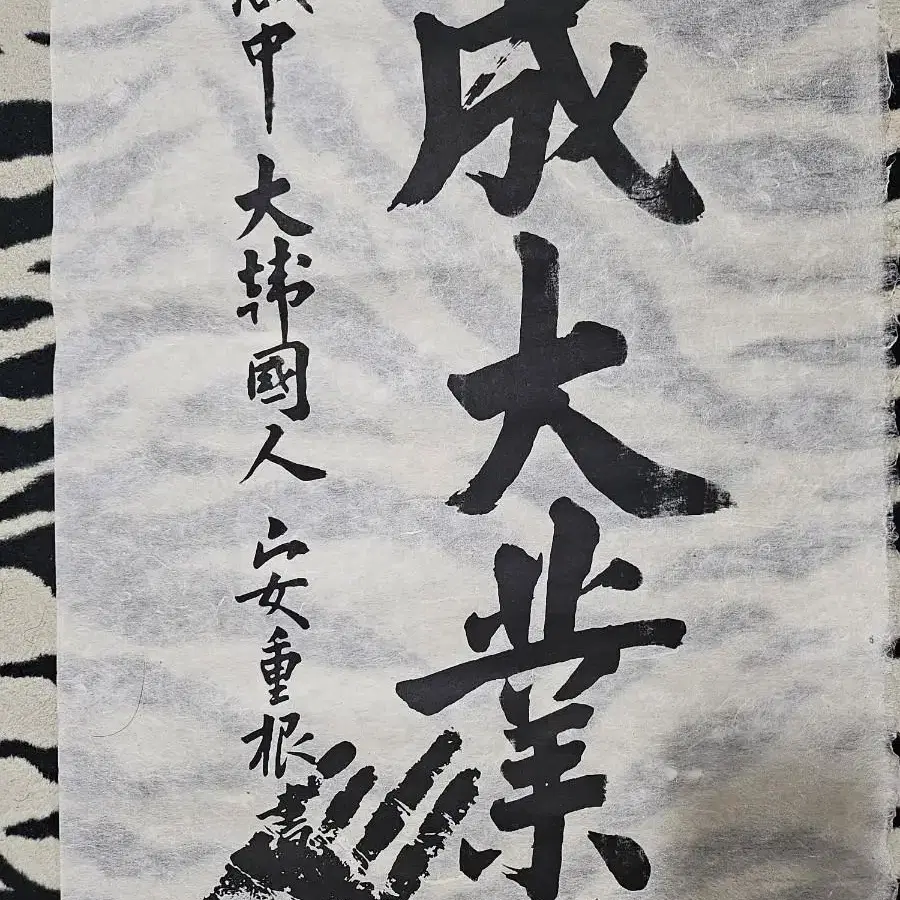 成大業
中 大韓國人 安重根 書